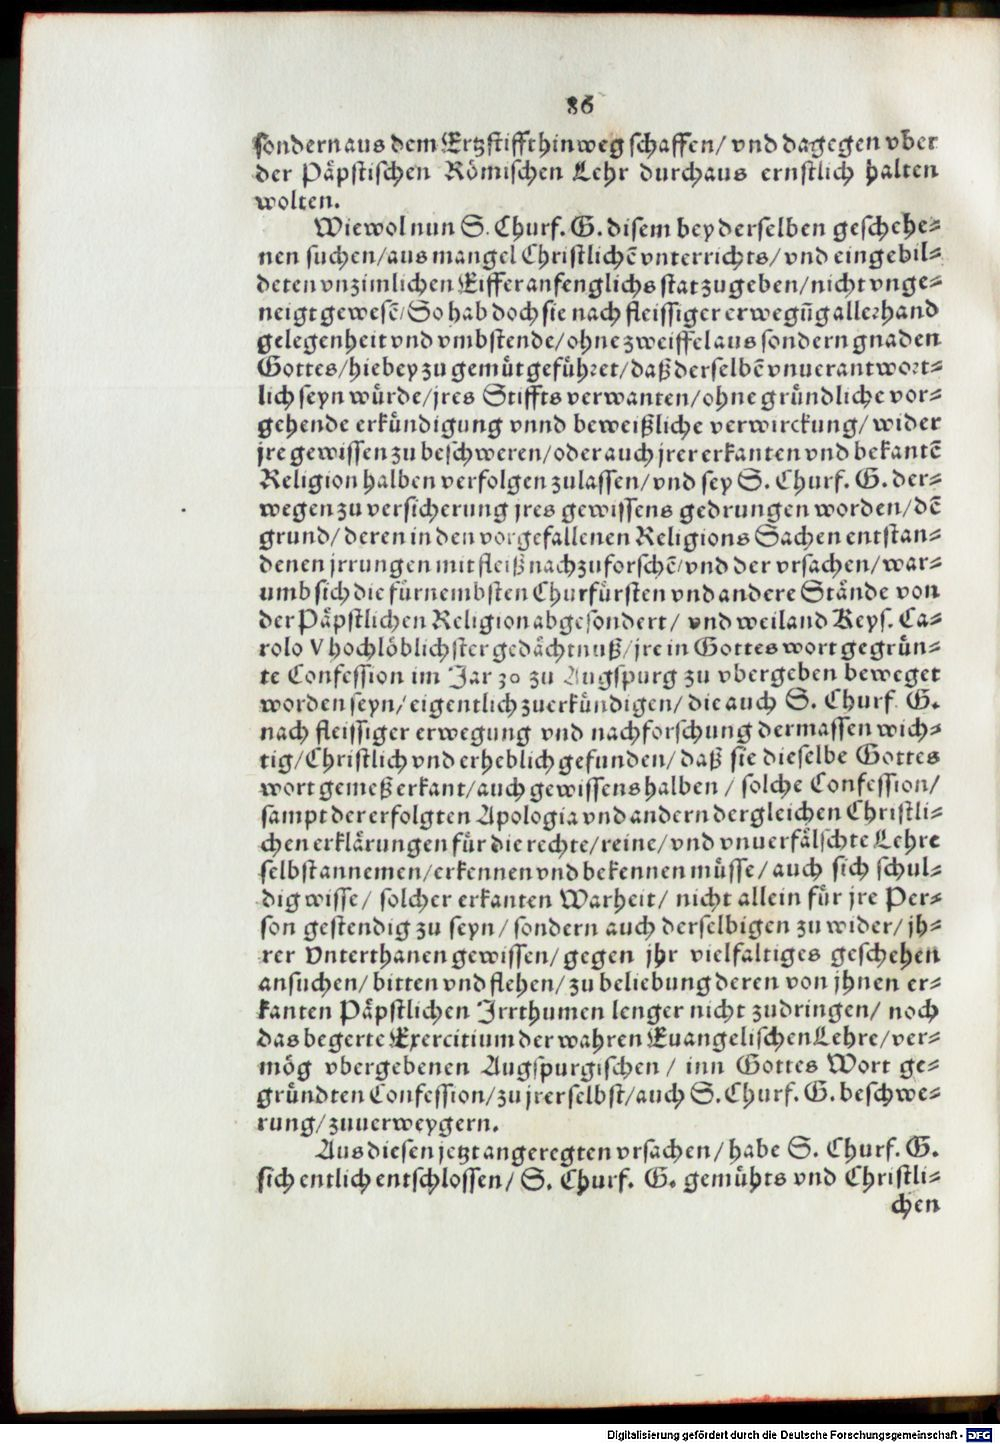 86
sondern aus dem Ertzstifft hinweg schaffen/ vnd dagegen vber
der Päpstischen Römischen Lehr durchaus ernstlich halten
wolten.
Wiewol nun S. Churf. G. disem bey derselben geschehe⸗
nen suchen/ aus mangel Christlichē vnterrichts/ vnd eingebil⸗
deten vnzimlichen Eiffer anfenglichs stat zugeben/ nicht vnge⸗
neigt gewesē/ So hab doch sie nach fleissiger erwegūg allerhand
gelegenheit vnd vmbstende/ ohne zweiffel aus sondern gnaden
Gottes/ hiebey zu gemüt geführet/ daß derselbē vnuerantwort⸗
lich seyn würde/ jres Stiffts verwanten/ ohne gründliche vor⸗
gehende erkündigung vnnd beweißliche verwirckung/ wider
jre gewissen zu beschweren/ oder auch jrer erkanten vnd bekantē
Religion halben verfolgen zulassen/ vnd sey S. Churf. G. der⸗
wegen zu versicherung jres gewissens gedrungen worden/ dē
grund/ deren in den vorgefallenen Religions Sachen entstan⸗
denen jrrungen mit fleiß nachzuforschē/ vnd der vrsachen/ war⸗
umb sich die fürnembsten Churfürsten vnd andere Stände von
der Päpstlichen Religion abgesondert/ vnd weiland Keys. Ca⸗
rolo V hochlöblichster gedächtnuß/ jre in Gottes wort gegrün⸗
te Confession im Jar 30 zu Augspurg zu vbergeben beweget
worden seyn/ eigentlich zuerkündigen/ die auch S. Churf. G.
nach fleissiger erwegung vnd nachforschung dermassen wich⸗
tig/ Christlich vnd erheblich gefunden/ daß sie dieselbe Gottes
wort gemeß erkant/ auch gewissens halben/ solche Confession/
sampt der erfolgten Apologia vnd andern dergleichen Christli⸗
chen erklärungen für die rechte/ reine/ vnd vnuerfälschte Lehre
selbst annemen/ erkennen vnd bekennen müsse/ auch sich schul⸗
dig wisse/ solcher erkanten Warheit/ nicht allein für jre Per⸗
son gestendig zu seyn/ sondern auch derselbigen zu wider/ jh⸗
rer Vnterthanen gewissen/ gegen jhr vielfaltiges geschehen
ansuchen/ bitten vnd flehen/ zu beliebung deren von jhnen er⸗
kanten Päpstlichen Irrthumen lenger nicht zudringen/ noch
das begerte Exercitium der wahren Euangelischen Lehre/ ver⸗
mög vbergebenen Augspurgischen/ inn Gottes Wort ge⸗
gründten Confession/ zu jrer selbst/ auch S. Churf. G. beschwe⸗
rung/ zuuerweygern.
Aus diesen jetzt angeregten vrsachen/ habe S. Churf. G.
sich entlich entschlossen/ S. Churf. G. gemühts vnd Christli⸗
chen
Digitalisierung gefördert durch die Deutsche Forschungsgemeinschaft - DFG